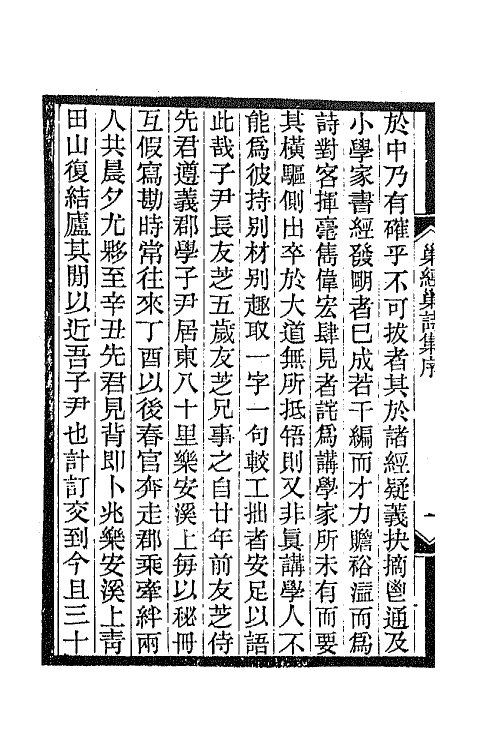 於中乃有確乎不可拔者其於諸經疑義抉摘鬯通及
小學家書經發明者已成若干編而才力贍裕溢而爲
詩對客揮毫雋偉宏肆見者詫爲講學家所未有而要
其橫驅側出卒於大道無所抵牾則又非眞講學人不
能爲彼持別材別趣取一字一句較工拙者安足以語
此哉子尹長友芝五歲友芝兄事之自廿年前友芝侍
先君遵義郡學子尹居東八十里樂安溪上每以秘冊
互假寫勘時常往來丁酉以後春官奔走郡乘牽絆兩
人共晨夕尤夥至辛丑先君見背卽卜兆樂安溪上靑
田山復結廬其閒以近吾子尹也計訂交到今且三十
巢經巢詩集序
一